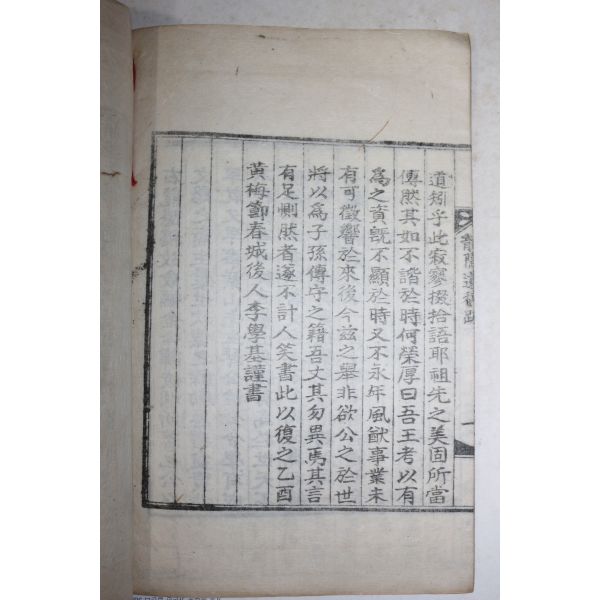 道矧乎此寂寥掇拾語耶祖先之美固所當
傳然其如不諧於時何榮厚曰吾王考以有
爲之資旣不顯於時又不永年風猷事業未
有可徵響於來後今玆之舉非欲公之於世
將以爲子孫傳守之籍吾丈其勿異焉其言
有足惻然者遂不計人笑書此以復之乙酉
黃梅節春城後人李學基謹書